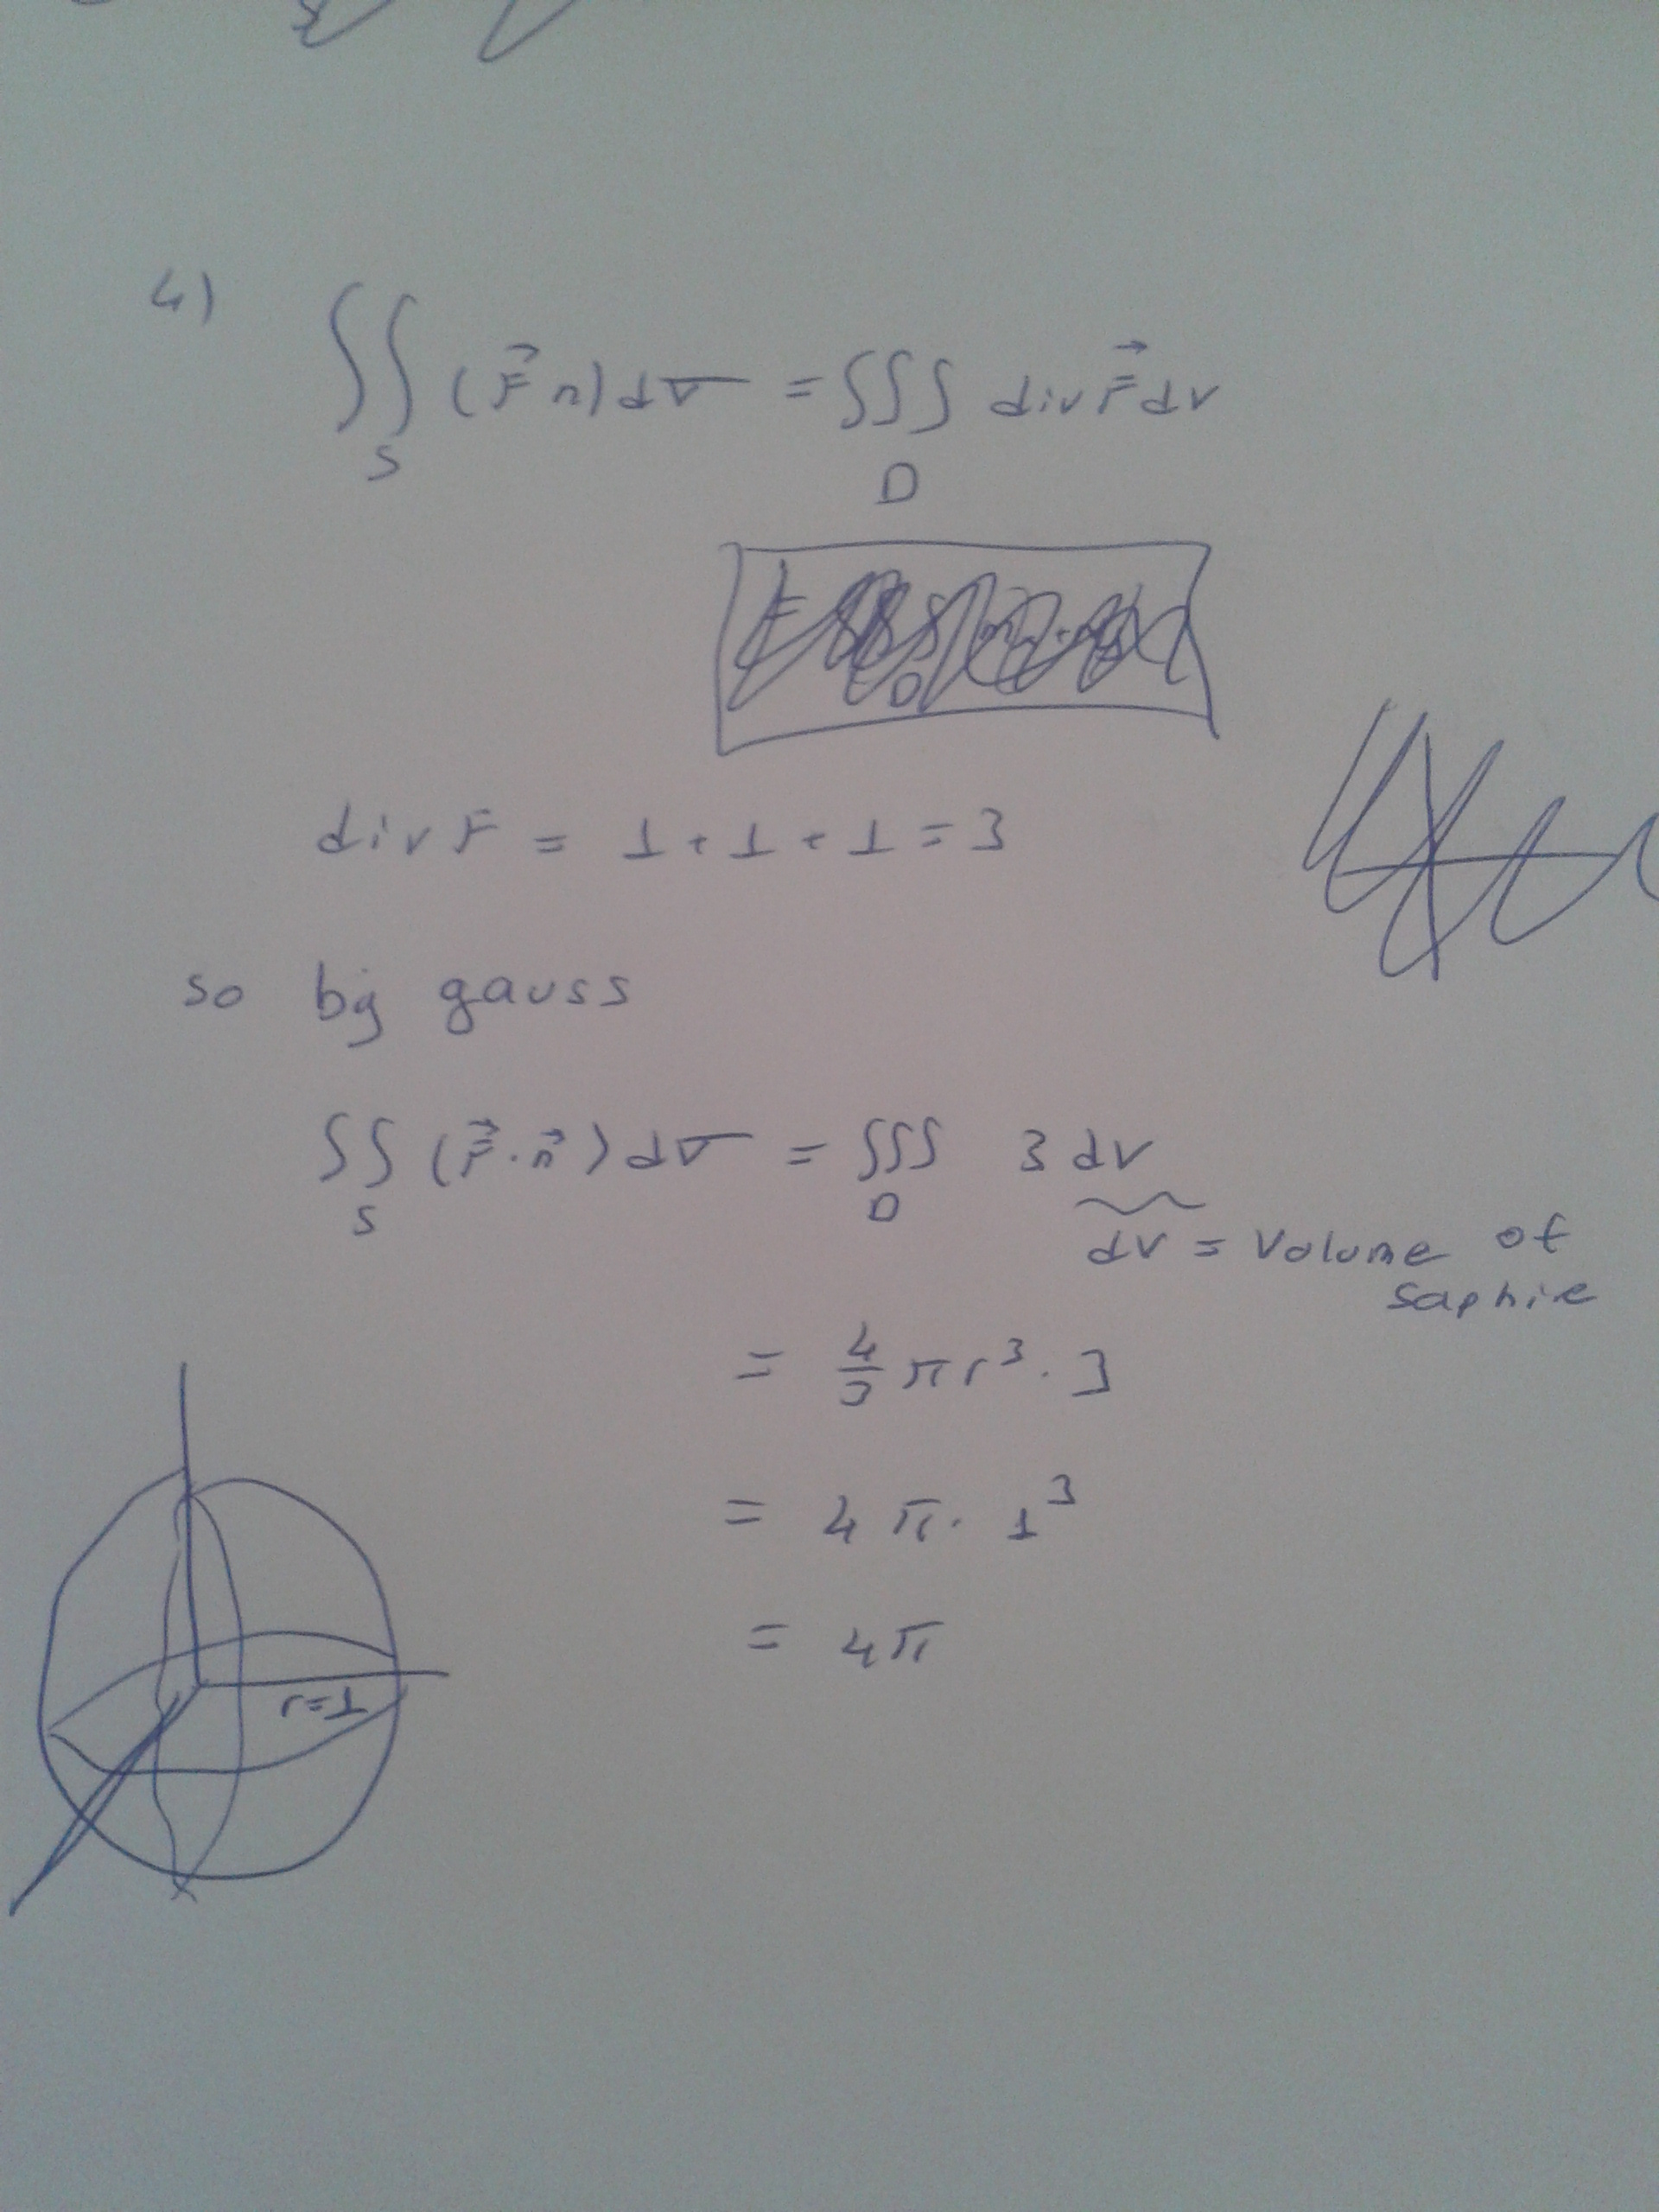 4) ∬_S (F⃗ n) dσ = ∭_D div F⃗ dv
div F = 1 + 1 + 1 = 3
so by gauss
∬_S (F⃗ · n⃗) dσ = ∭_D 3 dv
dv = Volume of
saphire
= 4/3 π r³ · 3
= 4 π · 1³
= 4π
r=1